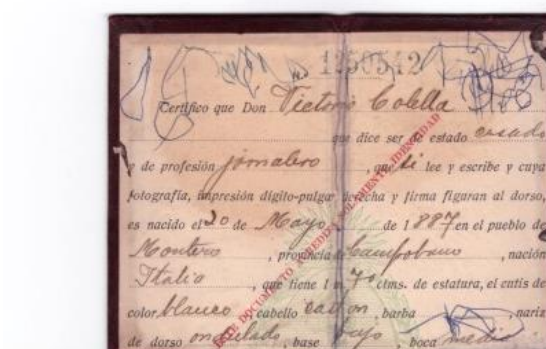 1250542
Certifico que Don Victorio Colella
que dice ser de estado casado
y de profesión jornalero , que si lee y escribe y cuya
fotografía, impresión dígito-pulgar derecha y firma figuran al dorso,
es nacido el 20 de Mayo de 1887 en el pueblo de
Montero , provincia de Campobano , nación
Italia , que tiene 1 m. 70 ctms. de estatura, el cutis de
color blanco cabello , barba , nariz
de dorso ondulado , base bajo , boca media
ESTE DOCUMENTO ACREDITA SOLAMENTE IDENTIDAD